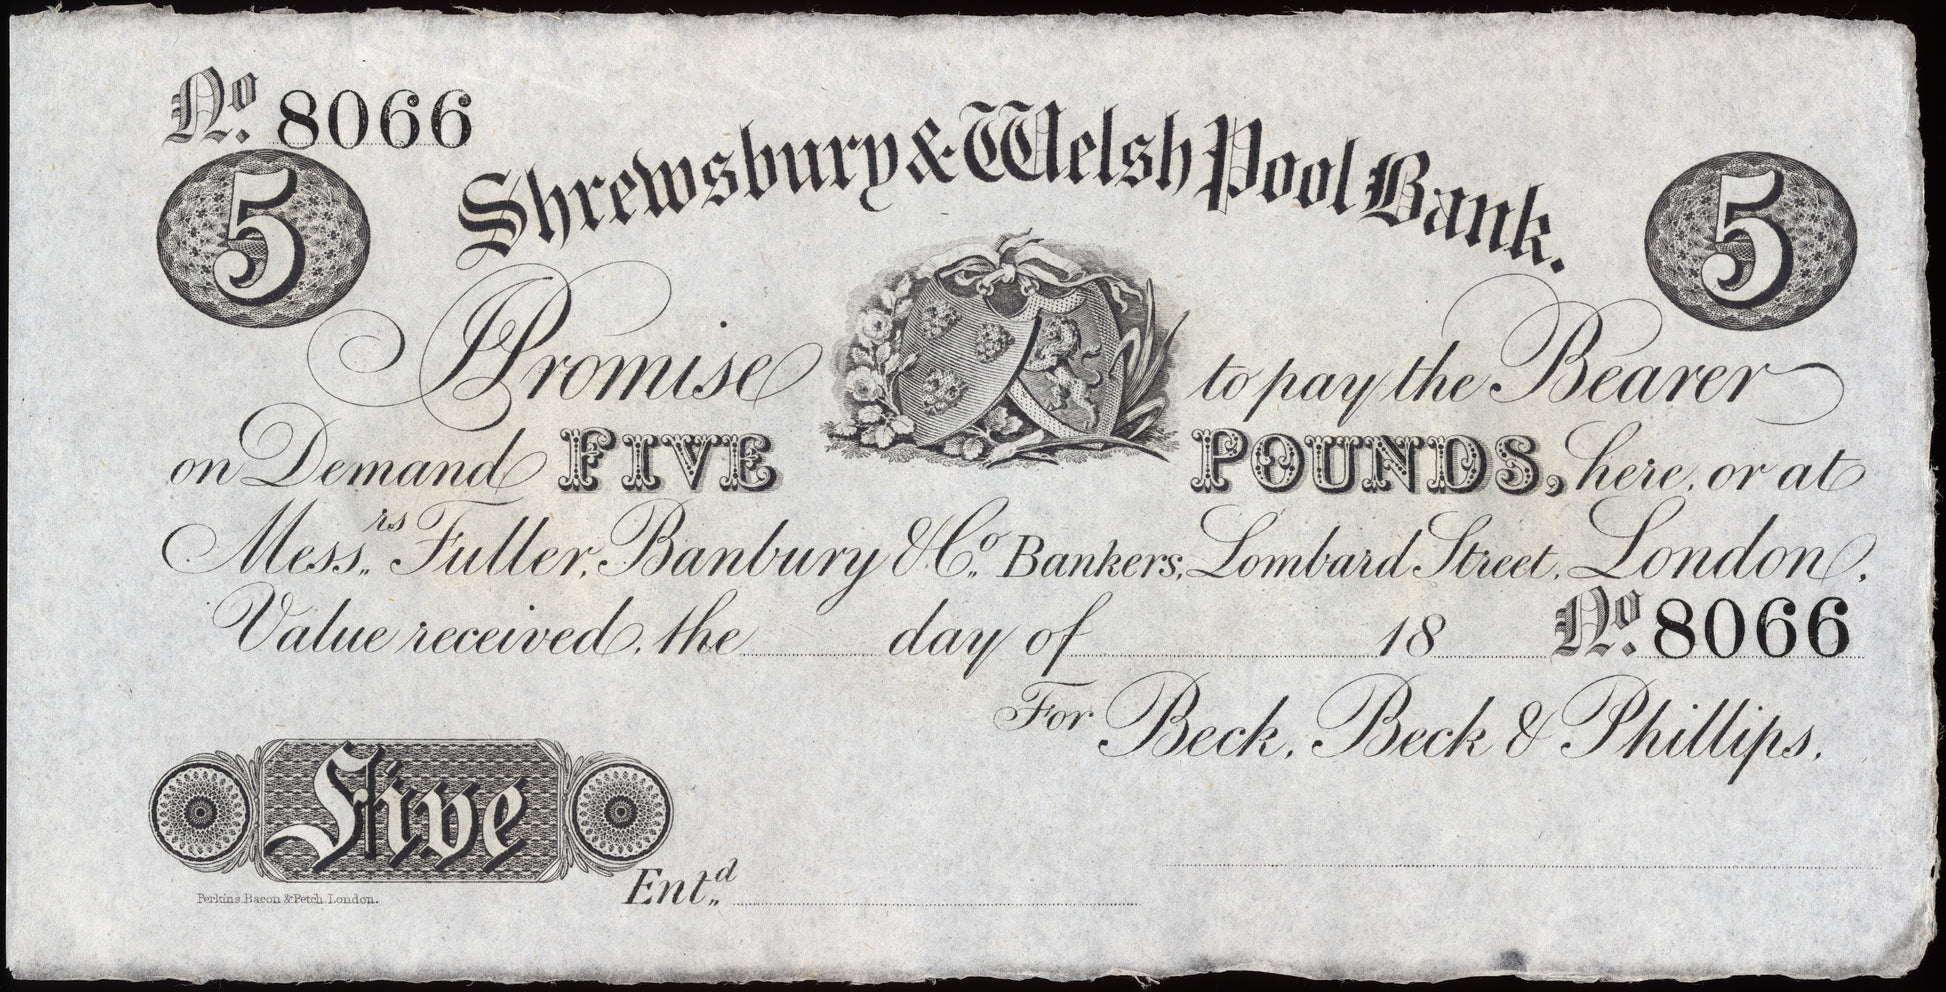 No. 8066
Shrewsbury & Welsh Pool Bank.
5
5
I Promise to pay the Bearer
on Demand FIVE POUNDS, here, or at
Messrs. Fuller, Banbury & Co. Bankers, Lombard Street, London,
Value received, the day of 18 No. 8066
For Beck, Beck & Phillips,
Five
Entd.
Perkins Bacon & Petch, London.